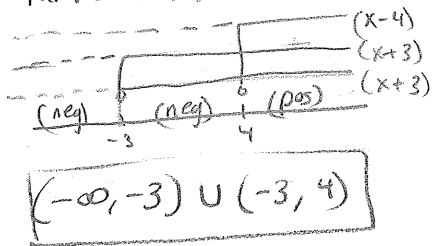 (x-4)
(x+3)
(x+3)
(neg) (neg) (pos)
-3 4
(-∞,-3) ∪ (-3, 4)